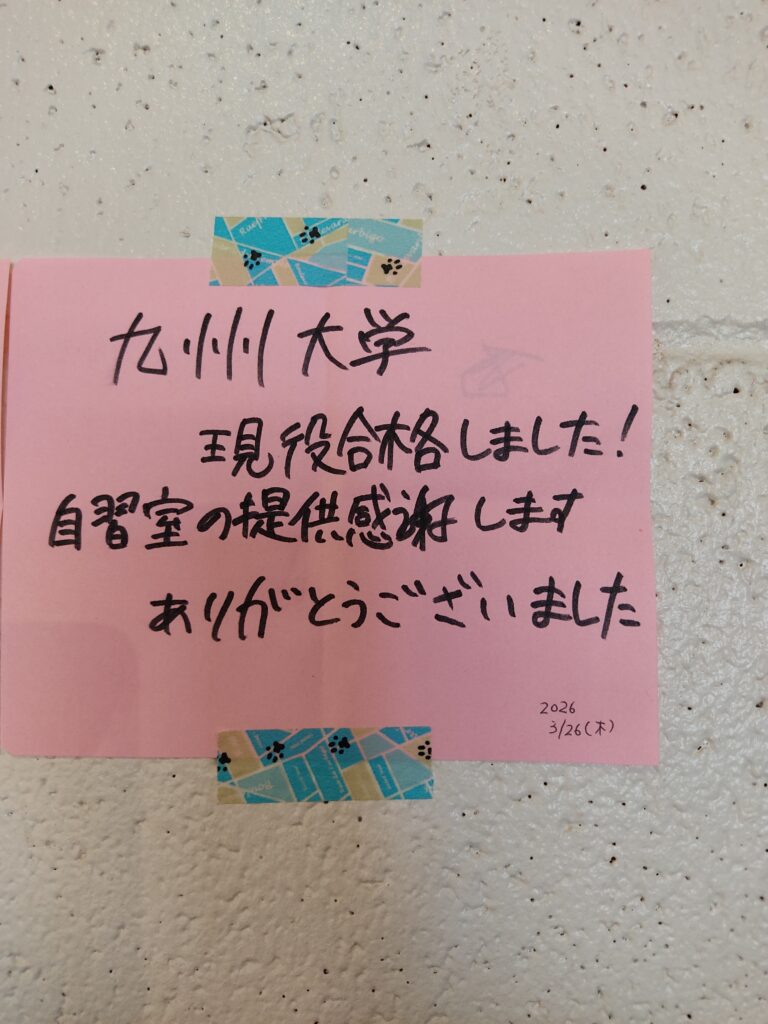 九州大学
現役合格しました!
自習室の提供感謝します
ありがとうございました
2026
3/26(木)